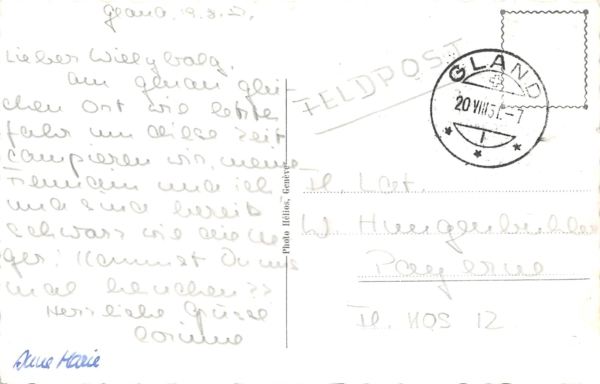 Gland, 9.8.51.
Lieber Willybalg,
Am genau glei
chen Ort wie letzte
Jahr um diese Zeit
campieren wir, meine
Freundin und ich
und sind bereits
schwarz wie die Ne
ger! Kannst Du uns
mal besuchen??
Herzliche Grüsse
Corinne
Anne Marie
Photo Hélios, Genève
FELDPOST
GLAND
20 VIII 51.-7
Fl. Lt.
W. Hungerbühler
Payerne
Fl. HQS 12